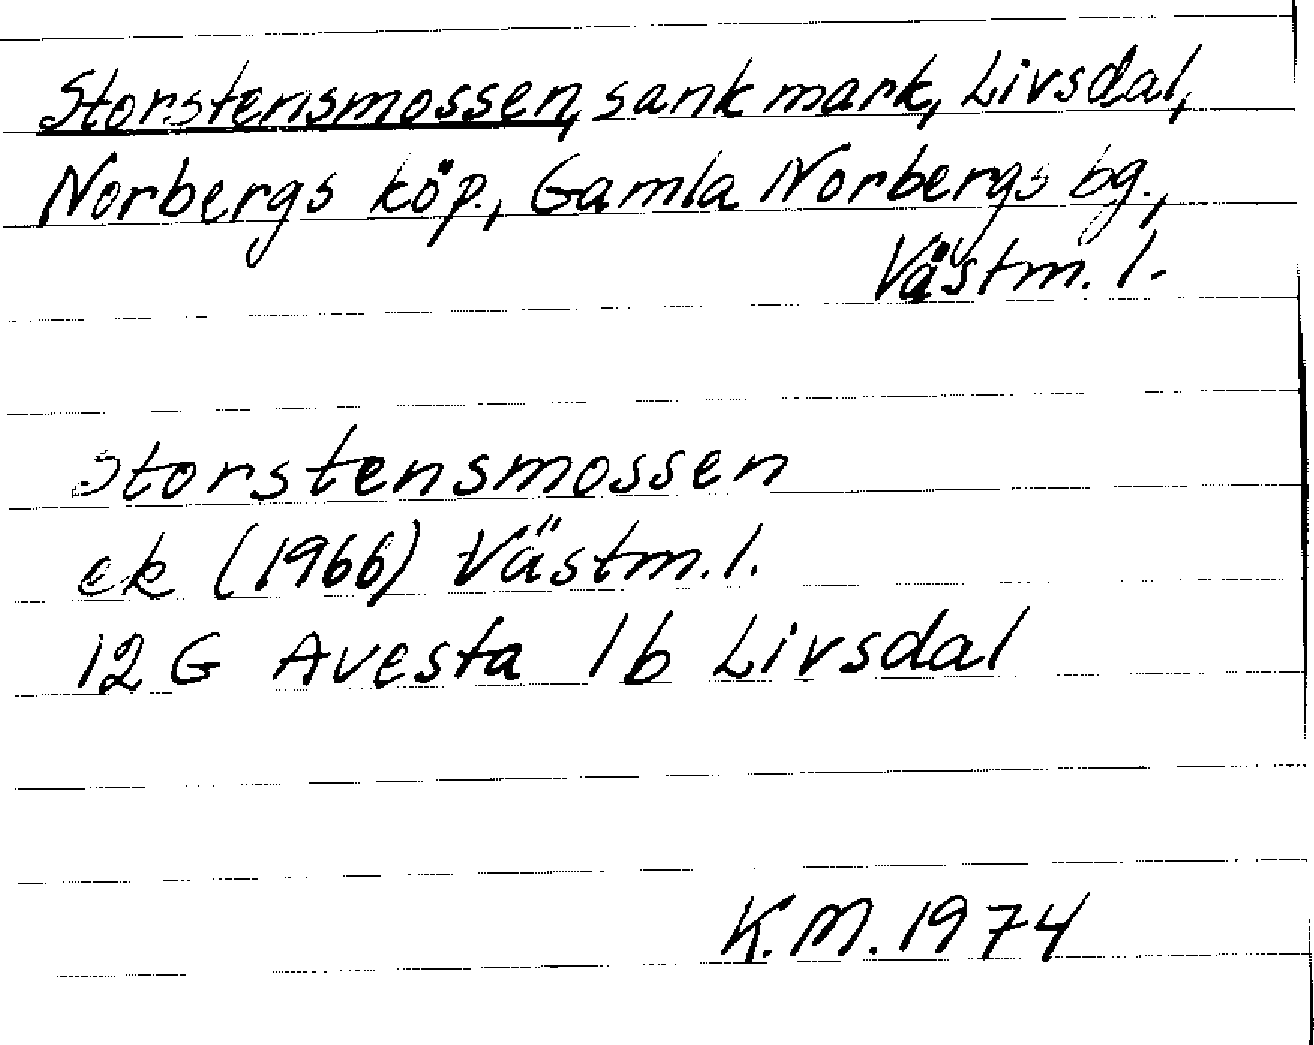 Storstensmossen, sank mark, Livsdal,
Norbergs köp., Gamla Norbergs bg.,
Västm. l.
Storstensmossen
ek (1966) Västm. l.
12 G Avesta 1b Livsdal
K.M. 1974